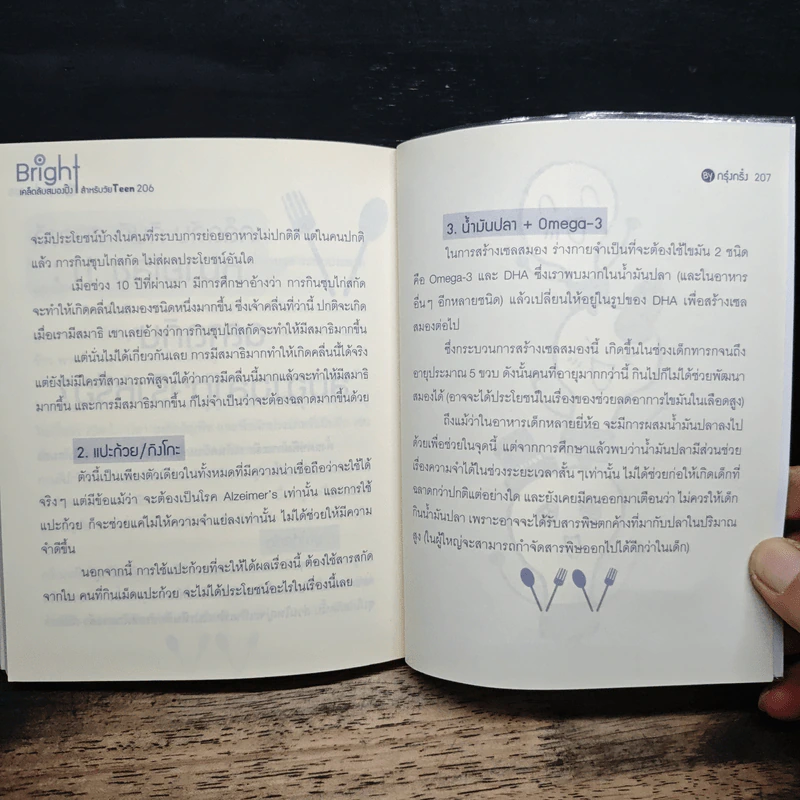 Bright
เคล็ดลับสมองปิ๊ง สำหรับวัย Teen 206
จะมีประโยชน์บ้างในคนที่ระบบการย่อยอาหารไม่ปกติดี แต่ในคนปกติ
แล้ว การกินซุปไก่สกัด ไม่ส่งผลประโยชน์อันใด
เมื่อช่วง 10 ปีที่ผ่านมา มีการศึกษาอ้างว่า การกินซุปไก่สกัด
จะทำให้เกิดคลื่นในสมองชนิดหนึ่งมากขึ้น ซึ่งเจ้าคลื่นที่ว่านี้ ปกติจะเกิด
เมื่อเรามีสมาธิ เขาเลยอ้างว่าการกินซุปไก่สกัดจะทำให้มีสมาธิมากขึ้น
แต่นั่นไม่ได้เกี่ยวกันเลย การมีสมาธิมากทำให้เกิดคลื่นนี้ได้จริง
แต่ยังไม่มีใครที่สามารถพิสูจน์ได้ว่าการมีคลื่นนี้มากแล้วจะทำให้มีสมาธิ
มากขึ้น และการมีสมาธิมากขึ้น ก็ไม่จำเป็นว่าจะต้องฉลาดมากขึ้นด้วย
2. แปะก๊วย/กิงโกะ
ตัวนี้เป็นเพียงตัวเดียวในทั้งหมดที่มีความน่าเชื่อถือว่าจะใช้ได้
จริงๆ แต่มีข้อแม้ว่า จะต้องเป็นโรค Alzeimer's เท่านั้น และการใช้
แปะก๊วย ก็จะช่วยแค่ไม่ให้ความจำแย่ลงเท่านั้น ไม่ได้ช่วยให้มีความ
จำดีขึ้น
นอกจากนี้ การใช้แปะก๊วยที่จะให้ได้ผลเรื่องนี้ ต้องใช้สารสกัด
จากใบ คนที่กินเม็ดแปะก๊วย จะไม่ได้ประโยชน์อะไรในเรื่องนี้เลย
By กรุ๋งกริ๋ง 207
3. น้ำมันปลา + Omega-3
ในการสร้างเซลสมอง ร่างกายจำเป็นที่จะต้องใช้ไขมัน 2 ชนิด
คือ Omega-3 และ DHA ซึ่งเราพบมากในน้ำมันปลา (และในอาหาร
อื่นๆ อีกหลายชนิด) แล้วเปลี่ยนให้อยู่ในรูปของ DHA เพื่อสร้างเซล
สมองต่อไป
ซึ่งกระบวนการสร้างเซลสมองนี้ เกิดขึ้นในช่วงเด็กทารกจนถึง
อายุประมาณ 5 ขวบ ดังนั้นคนที่อายุมากกว่านี้ กินไปก็ไม่ได้ช่วยพัฒนา
สมองได้ (อาจจะได้ประโยชน์ในเรื่องของช่วยลดอาการไขมันในเลือดสูง)
ถึงแม้ว่าในอาหารเด็กหลายยี่ห้อ จะมีการผสมน้ำมันปลาลงไป
ด้วยเพื่อช่วยในจุดนี้ แต่จากการศึกษาแล้วพบว่าน้ำมันปลามีส่วนช่วย
เรื่องความจำได้ในช่วงระยะเวลาสั้นๆเท่านั้น ไม่ได้ช่วยก่อให้เกิดเด็กที่
ฉลาดกว่าปกติแต่อย่างใด และยังเคยมีคนออกมาเตือนว่า ไม่ควรให้เด็ก
กินน้ำมันปลา เพราะอาจจะได้รับสารพิษตกค้างที่มากับปลาในปริมาณ
สูง (ในผู้ใหญ่จะสามารถกำจัดสารพิษออกไปได้ดีกว่าในเด็ก)